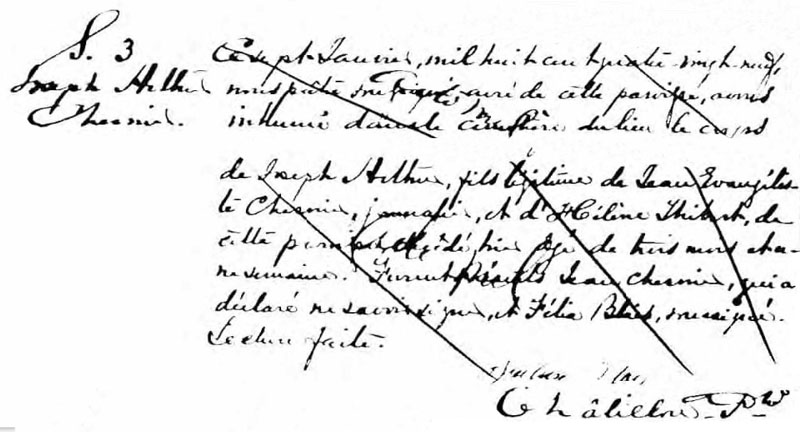 S. 3
Joseph Arthur
Chesnie.
Ce sept Janvier, mil huit cent quatre-vingt-neuf,
nous prêtre soussigné, curé de cette paroisse, avons
inhumé dans le cimetière du lieu le corps
de Joseph Arthur, fils légitime de Jean Evangélis-
te Chesnie, journalier, et d'Hélène Thibert, de
cette paroisse, décédé hier âgé de trois mois et u-
ne semaine. Furent présents Jean Chesnie, qui a
déclaré ne savoir signer, et Félix Blais, soussigné.
Lecture faite.
Blais
Châtillon Ptre